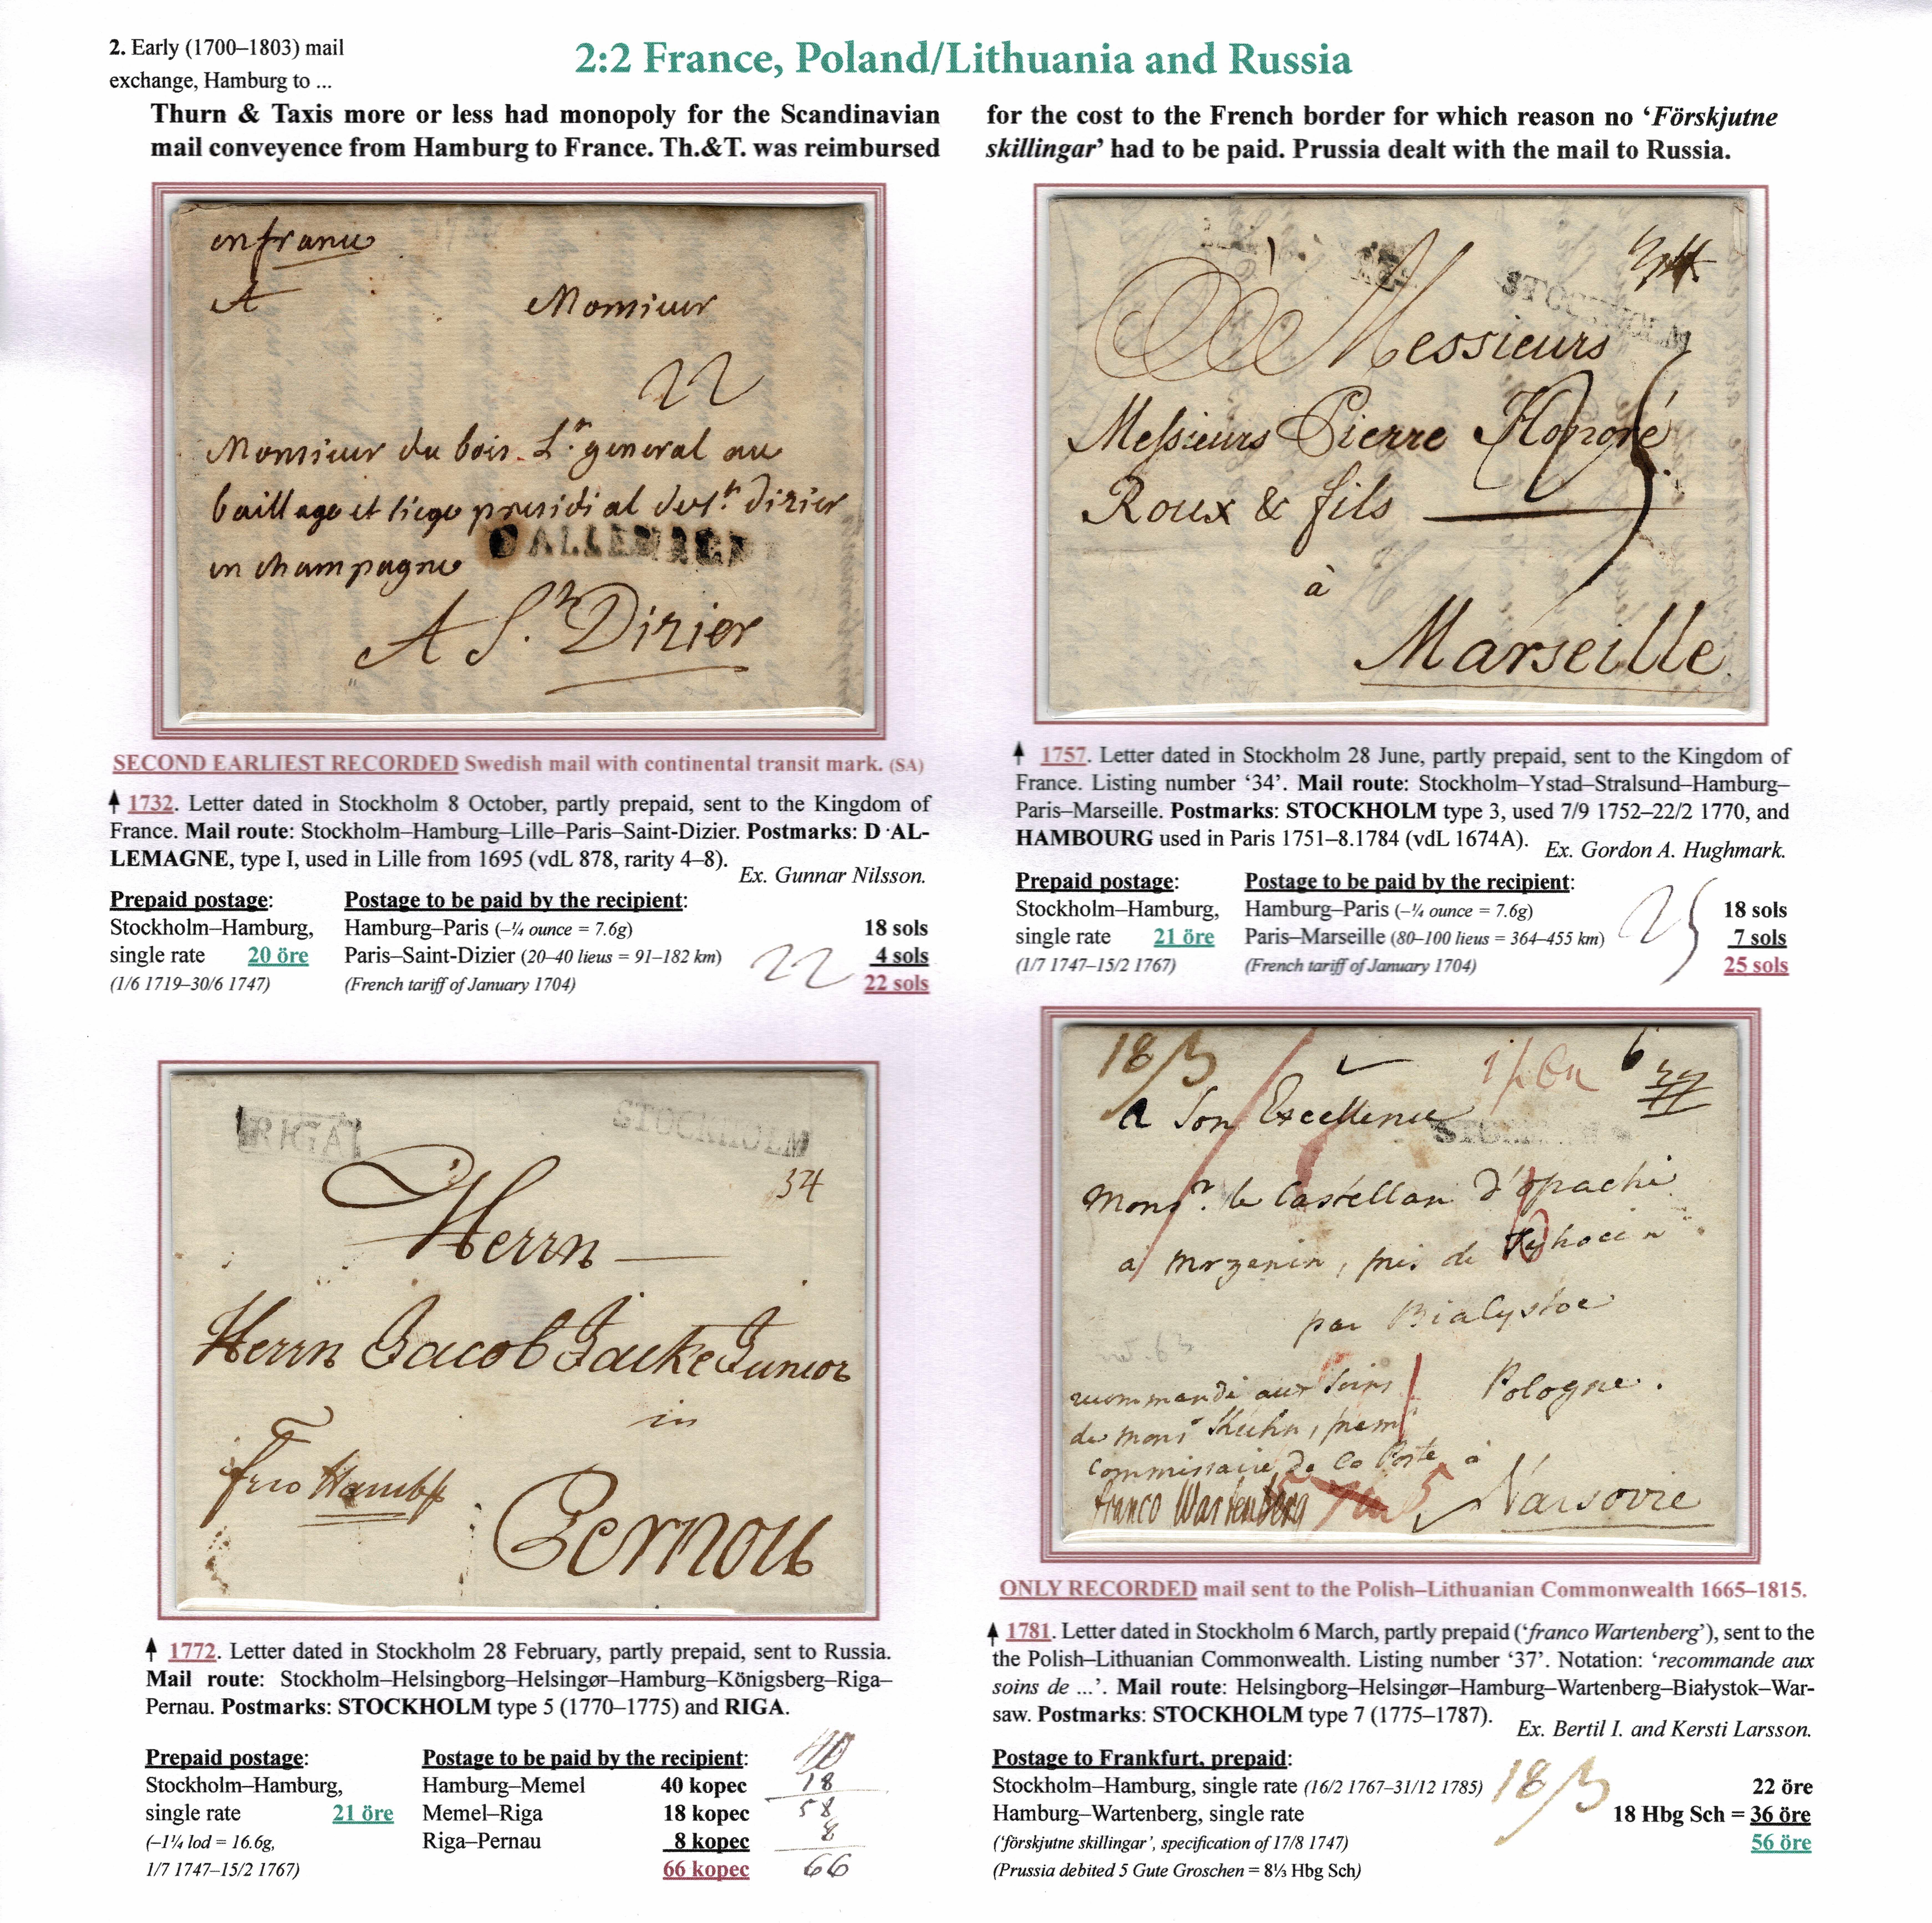 2. Early (1700–1803) mail
exchange, Hamburg to ...
2:2 France, Poland/Lithuania and Russia
Thurn & Taxis more or less had monopoly for the Scandinavian
mail conveyence from Hamburg to France. Th.&T. was reimbursed
for the cost to the French border for which reason no ‘Förskjutne
skillingar’ had to be paid. Prussia dealt with the mail to Russia.
en france
A Monsieur
22
Monsieur du bois Lt. general au
baillage et siege presidial de st. dizier
en champagne
D ALLEMAGNE
A St. Dizier
SECOND EARLIEST RECORDED Swedish mail with continental transit mark. (SA)
↑ 1732. Letter dated in Stockholm 8 October, partly prepaid, sent to the Kingdom of
France. Mail route: Stockholm–Hamburg–Lille–Paris–Saint-Dizier. Postmarks: D·AL-
LEMAGNE, type I, used in Lille from 1695 (vdL 878, rarity 4–8).
Ex. Gunnar Nilsson.
Prepaid postage: Postage to be paid by the recipient:
Stockholm–Hamburg, Hamburg–Paris (–¼ ounce = 7.6g) 18 sols
single rate 20 öre Paris–Saint-Dizier (20–40 lieus = 91–182 km) 22 4 sols
(1/6 1719–30/6 1747) (French tariff of January 1704) 22 sols
34
STOCKHOLM
A Messieurs
Messieurs Pierre Honoré
Roux & fils
25
à
Marseille
↑ 1757. Letter dated in Stockholm 28 June, partly prepaid, sent to the Kingdom of
France. Listing number ‘34’. Mail route: Stockholm–Ystad–Stralsund–Hamburg–
Paris–Marseille. Postmarks: STOCKHOLM type 3, used 7/9 1752–22/2 1770, and
HAMBOURG used in Paris 1751–8.1784 (vdL 1674A).
Ex. Gordon A. Hughmark.
Prepaid postage: Postage to be paid by the recipient:
Stockholm–Hamburg, Hamburg–Paris (–¼ ounce = 7.6g) 18 sols
single rate 21 öre Paris–Marseille (80–100 lieus = 364–455 km) 25 7 sols
(1/7 1747–15/2 1767) (French tariff of January 1704) 25 sols
RIGA STOCKHOLM
34
Herrn
Herrn Jacob Jacke Junior
in
frco Hambg
Pernou
↑ 1772. Letter dated in Stockholm 28 February, partly prepaid, sent to Russia.
Mail route: Stockholm–Helsingborg–Helsingør–Hamburg–Königsberg–Riga–
Pernau. Postmarks: STOCKHOLM type 5 (1770–1775) and RIGA.
Prepaid postage: Postage to be paid by the recipient:
Stockholm–Hamburg, Hamburg–Memel 40 kopec
single rate 21 öre Memel–Riga 18 kopec
(–1¼ lod = 16.6g, Riga–Pernau 8 kopec
1/7 1747–15/2 1767) 66 kopec
40
18
58
8
66
18/3 6 37
a Son Excellence
STOCKHOLM
Monsr. le Castellan d'opachi
a mrzenin, près de Tyhocin
par Bialystoc
Pologne.
recommandé aux soins
de monsr Kuhn, premr
commissaire de la Poste à
franco Wartenberg
Varsovie
ONLY RECORDED mail sent to the Polish–Lithuanian Commonwealth 1665–1815.
↑ 1781. Letter dated in Stockholm 6 March, partly prepaid (‘franco Wartenberg’), sent to the
the Polish–Lithuanian Commonwealth. Listing number ‘37’. Notation: ‘recommande aux
soins de ...’. Mail route: Helsingborg–Helsingør–Hamburg–Wartenberg–Białystok–War-
saw. Postmarks: STOCKHOLM type 7 (1775–1787).
Ex. Bertil I. and Kersti Larsson.
Postage to Frankfurt, prepaid:
Stockholm–Hamburg, single rate (16/2 1767–31/12 1785) 18/3 22 öre
Hamburg–Wartenberg, single rate 18 Hbg Sch = 36 öre
(‘förskjutne skillingar’, specification of 17/8 1747) 56 öre
(Prussia debited 5 Gute Groschen = 8⅓ Hbg Sch)